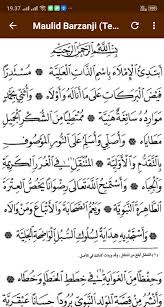 19.37
Maulid Barzanji (Te...
بِسْمِ اللهِ الرَّحْمَنِ الرَّحِيمِ
أَبْتَدِئُ الْإِمْلَاءَ بِاسْمِ الذَّاتِ الْعَلِيَّةِ * مُسْتَدِرًّا
فَيْضَ الْبَرَكَاتِ عَلَى مَا أَنَالَهُ وَأَوْلَاهُ * وَأُثَنِّي بِحَمْدٍ
مَوَارِدُهُ سَائِغَةٌ هَنِيَّةٌ * مُمْتَطِيًا مِنَ الشُّكْرِ الْجَمِيلِ
مَطَايَاهُ * وَأُصَلِّي وَأُسَلِّمُ عَلَى النُّورِ الْمَوْصُوفِ
بِالتَّقَدُّمِ وَالْأَوَّلِيَّةِ * الْمُنْتَقِلِ فِي الْغُرَرِ الْكَرِيمَةِ
وَالْجِبَاهِ * وَأَسْتَمْنِحُ اللهَ تَعَالَى رِضْوَانًا يَخُصُّ الْعِتْرَةَ
الطَّاهِرَةَ النَّبَوِيَّةَ * وَيَعُمُّ الصَّحَابَةَ وَالْأَتْبَاعَ وَمَنْ وَالَاهُ
* وَأَسْتَجْدِيهِ هِدَايَةً لِسُلُوكِ السُّبُلِ الْوَاضِحَةِ الْجَلِيَّةِ
* وَحِفْظًا مِنَ الْغَوَايَةِ فِي خِطَطِ الْخَطَأِ وَخُطَاهُ *